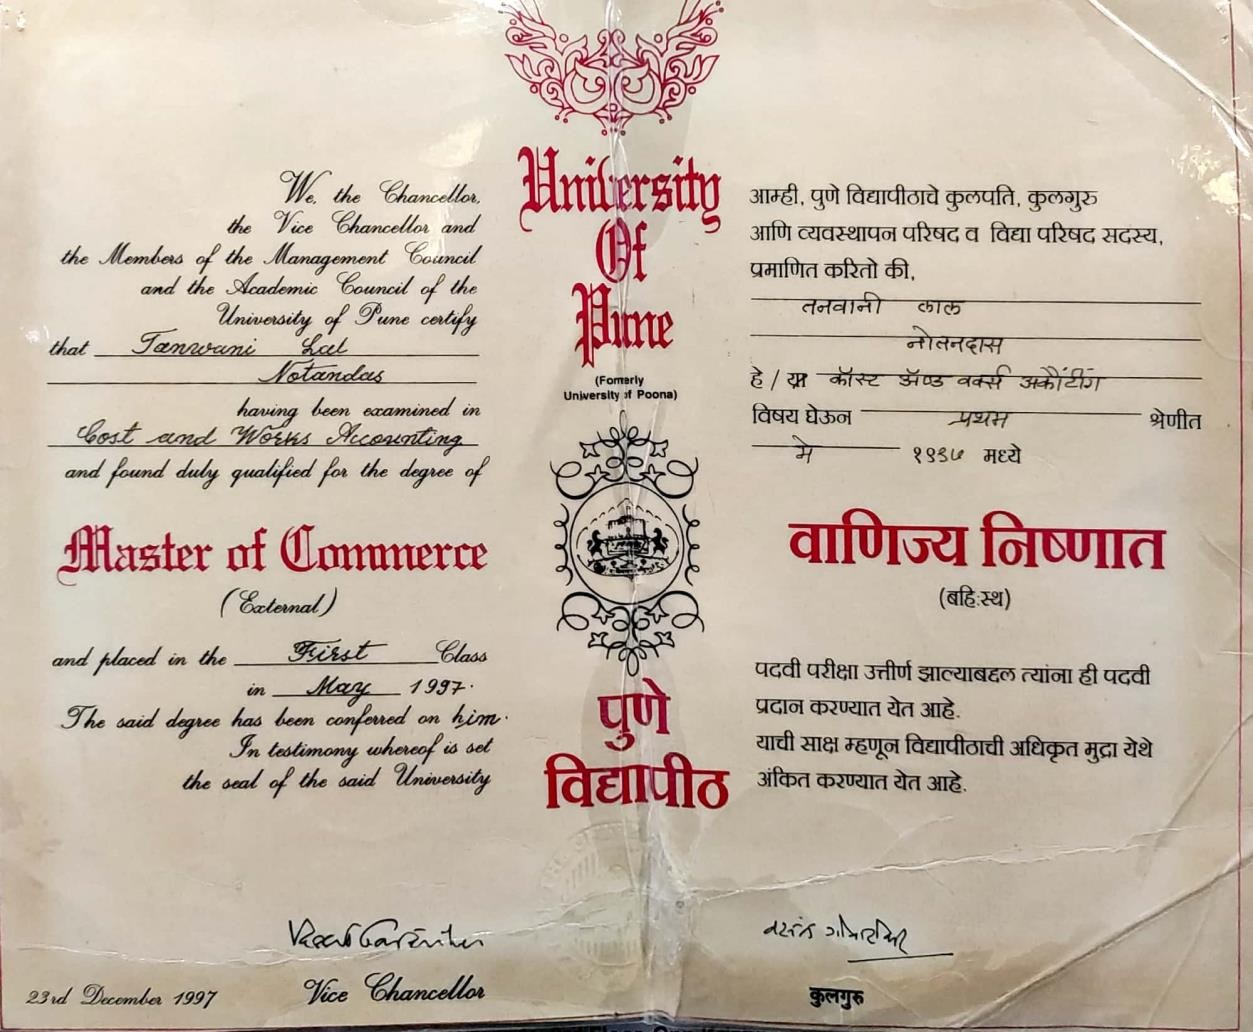 We, the Chancellor,
the Vice Chancellor and
the Members of the Management Council
and the Academic Council of the
University of Pune certify
that Tanwani Lal
Notandas
having been examined in
Cost and Works Accounting
and found duly qualified for the degree of
Master of Commerce
(External)
and placed in the First Class
in May 1997.
The said degree has been conferred on him.
In testimony whereof is set
the seal of the said University
23rd December 1997
Vice Chancellor
University
Of
Pune
(Formerly
University of Poona)
पुणे
विद्यापीठ
आम्ही, पुणे विद्यापीठाचे कुलपति, कुलगुरु
आणि व्यवस्थापन परिषद व विद्या परिषद सदस्य,
प्रमाणित करितो की,
तनवानी लाल
नोतनदास
हे / या कॉस्ट अॅण्ड वर्क्स अकौंटींग
विषय घेऊन प्रथम श्रेणीत
मे १९९७ मध्ये
वाणिज्य निष्णात
(बहिःस्थ)
पदवी परीक्षा उत्तीर्ण झाल्याबद्दल त्यांना ही पदवी
प्रदान करण्यात येत आहे.
याची साक्ष म्हणून विद्यापीठाची अधिकृत मुद्रा येथे
अंकित करण्यात येत आहे.
कुलगुरु